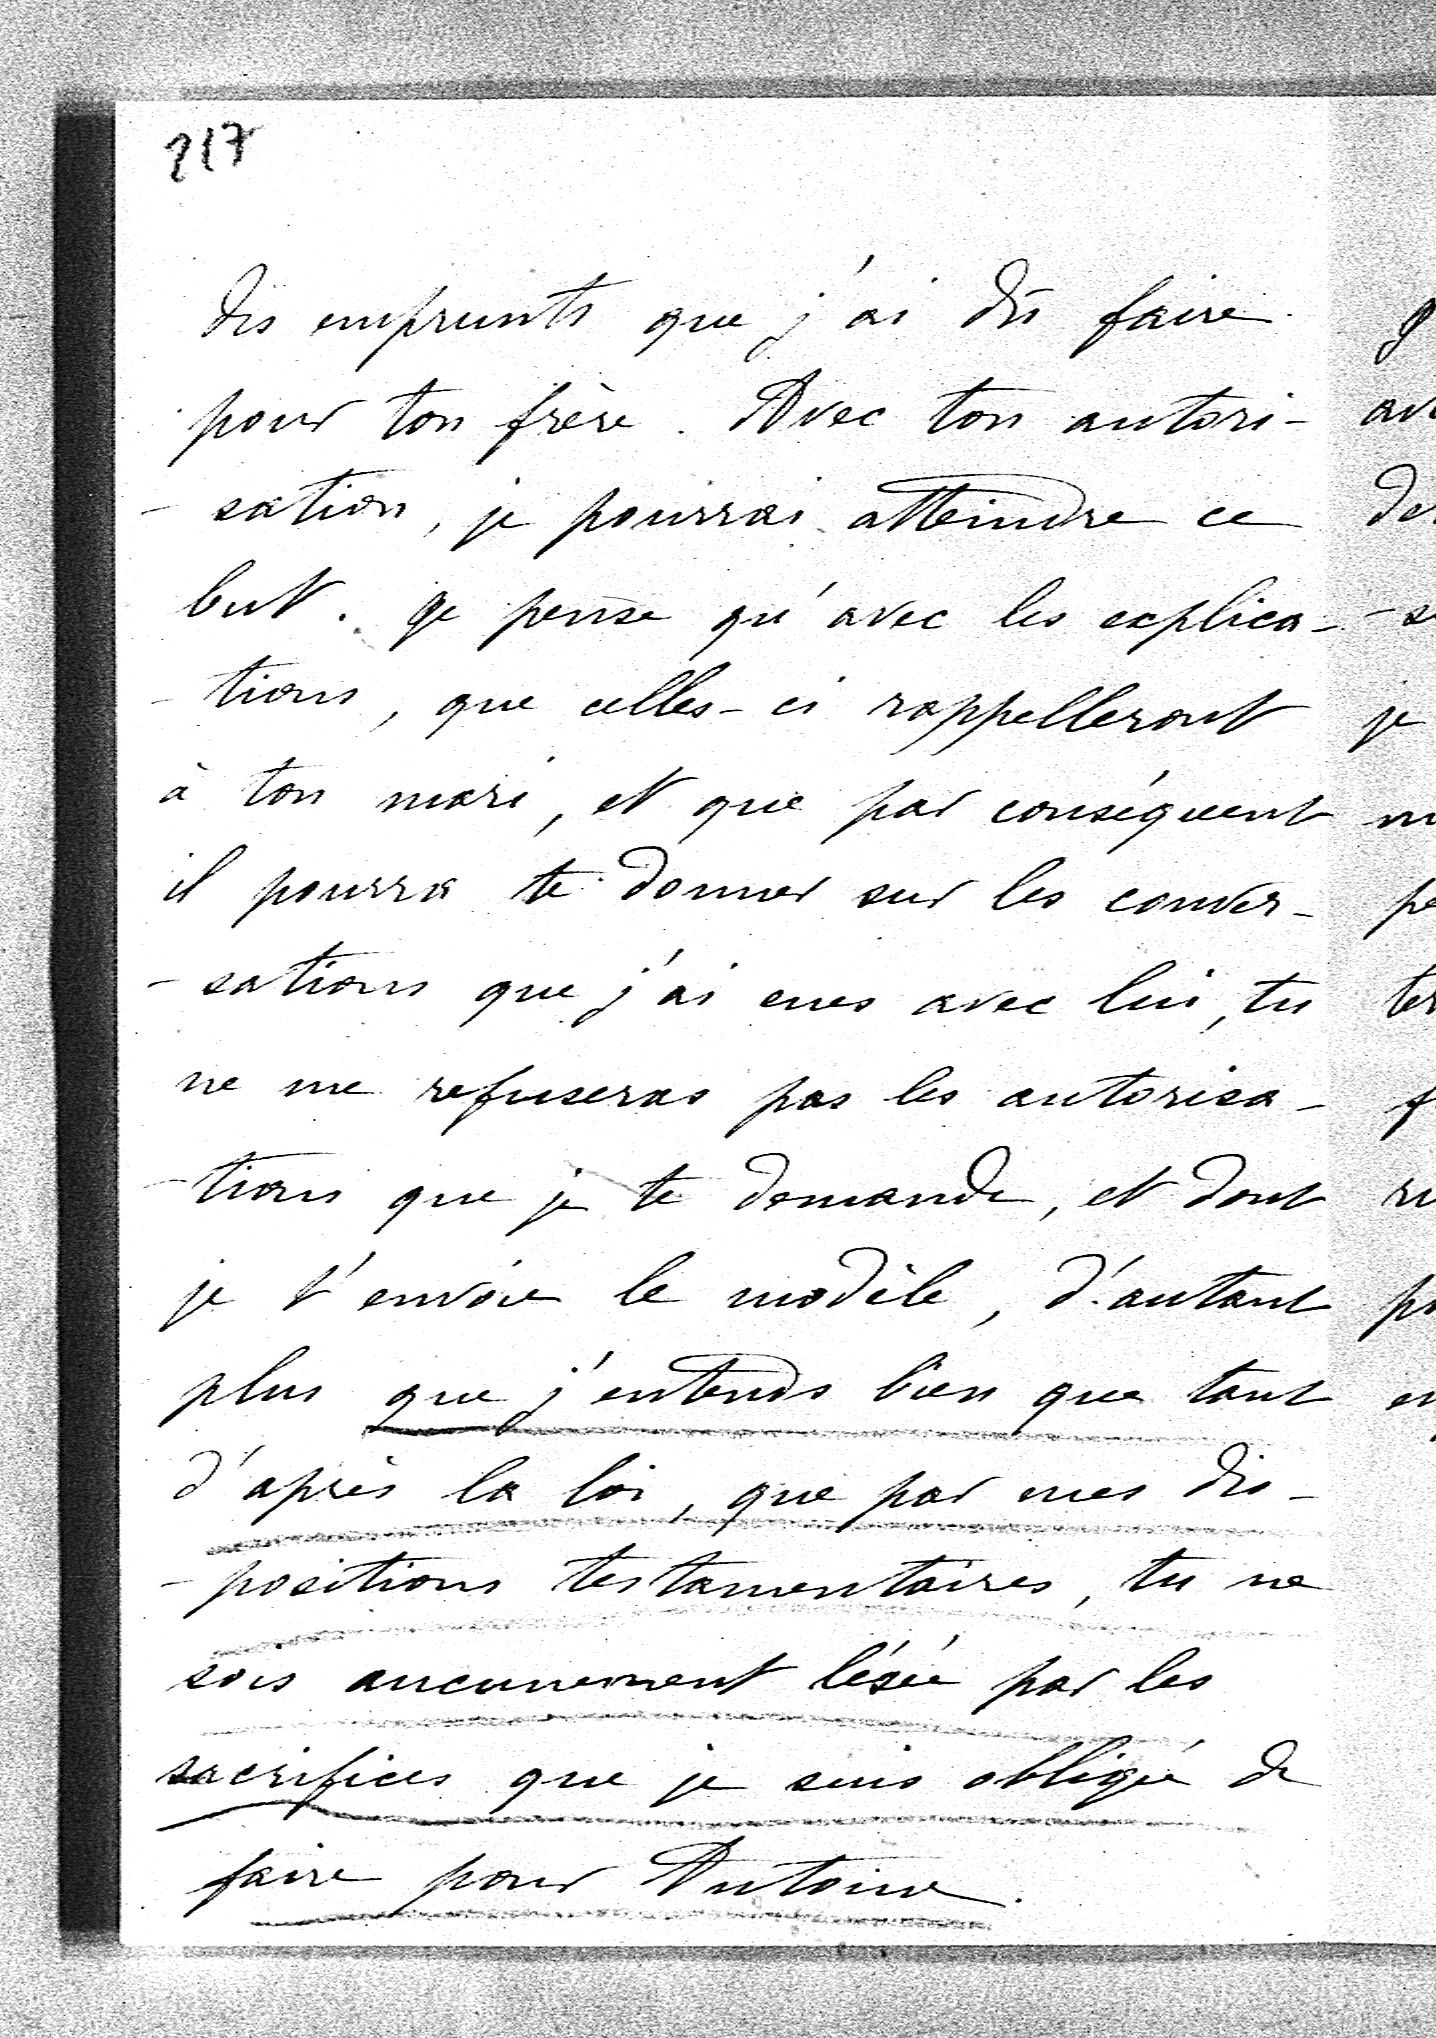 217
des emprunts que j'ai dû faire
pour ton frère. Avec ton autori-
-sation, je pourrai atteindre ce
but. Je pense qu'avec les explica-
-tions, que celles-ci rappelleront
à ton mari, et que par conséquent
il pourra te donner sur les conver-
-sations que j'ai eues avec lui, tu
ne me refuseras pas les autorisa-
-tions que je te demande, et dont
je t'envoie le modèle, d'autant
plus que j'entends bien que tant
d'après la loi, que par mes dis-
-positions testamentaires, tu ne
sois aucunement lésée par les
sacrifices que je suis obligée de
faire pour Antoine.